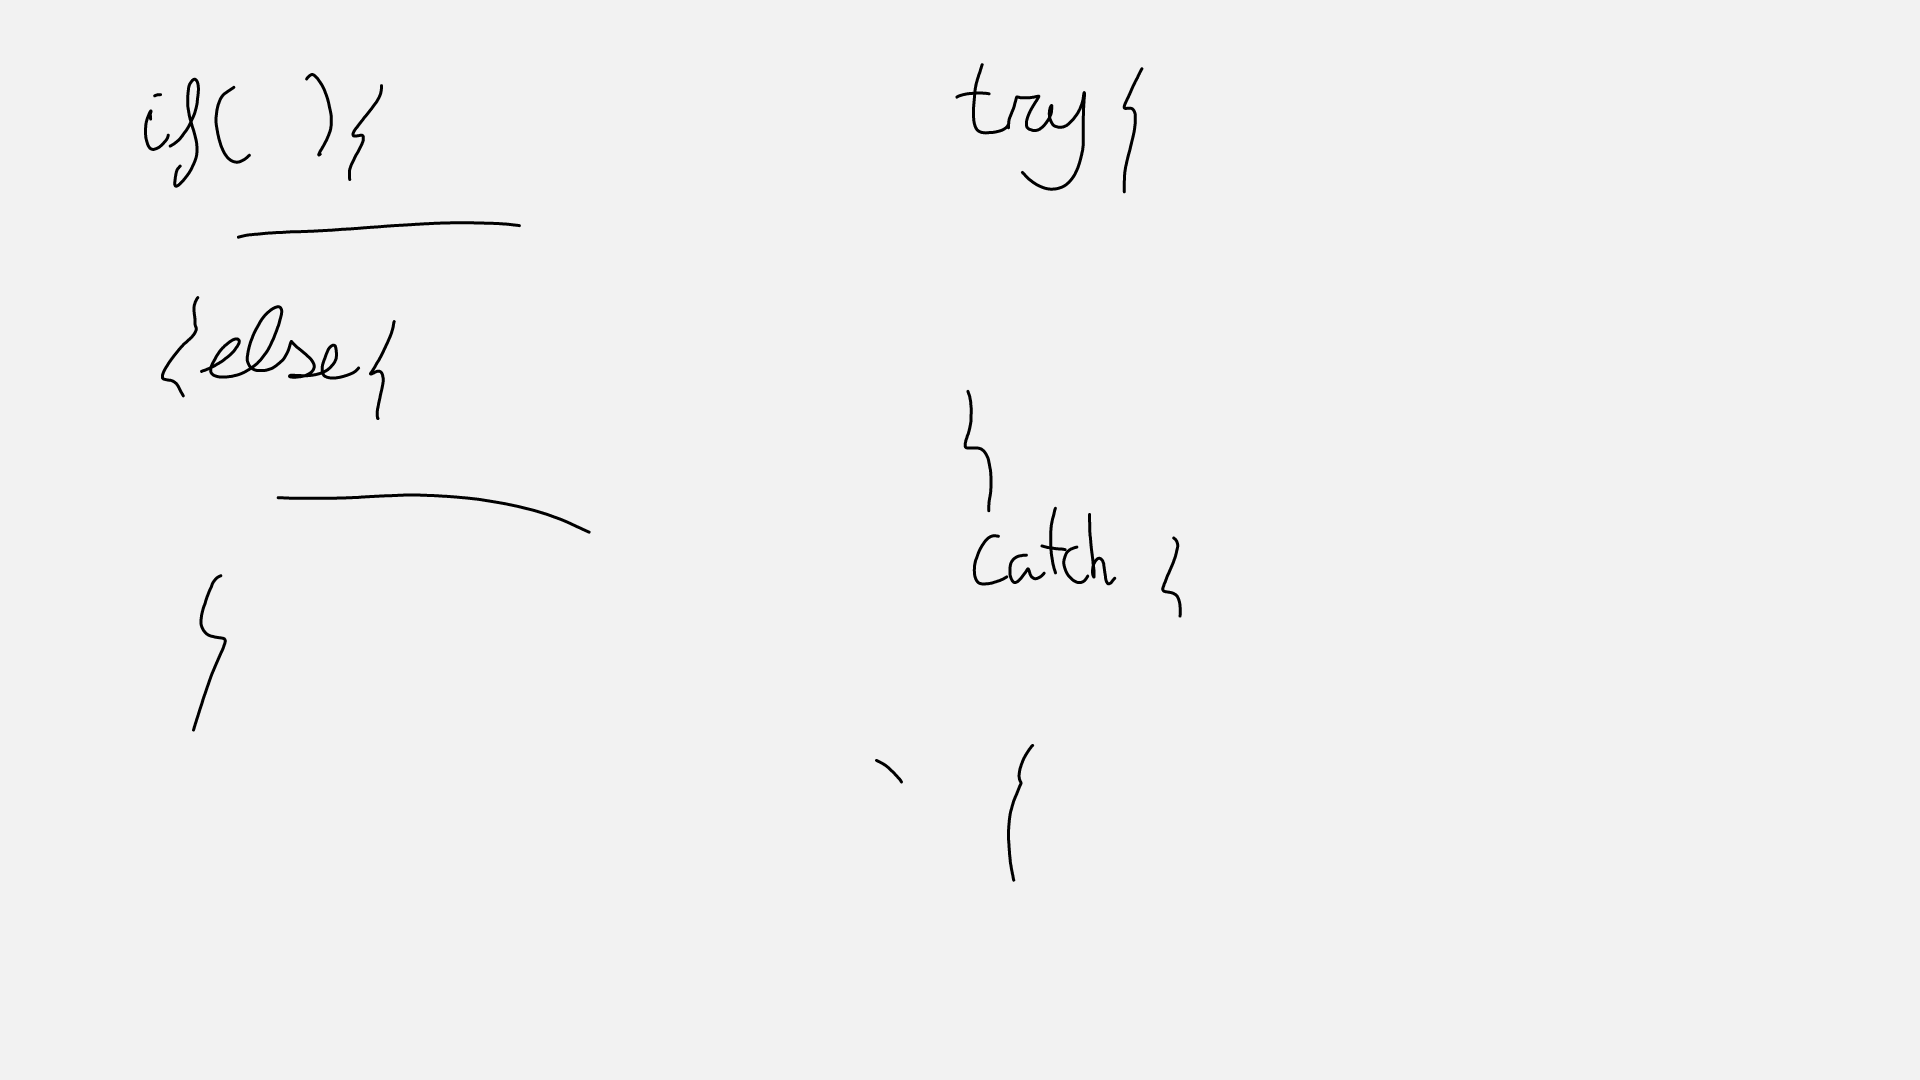 if( ){
{else{
}
try{
}
catch {
{